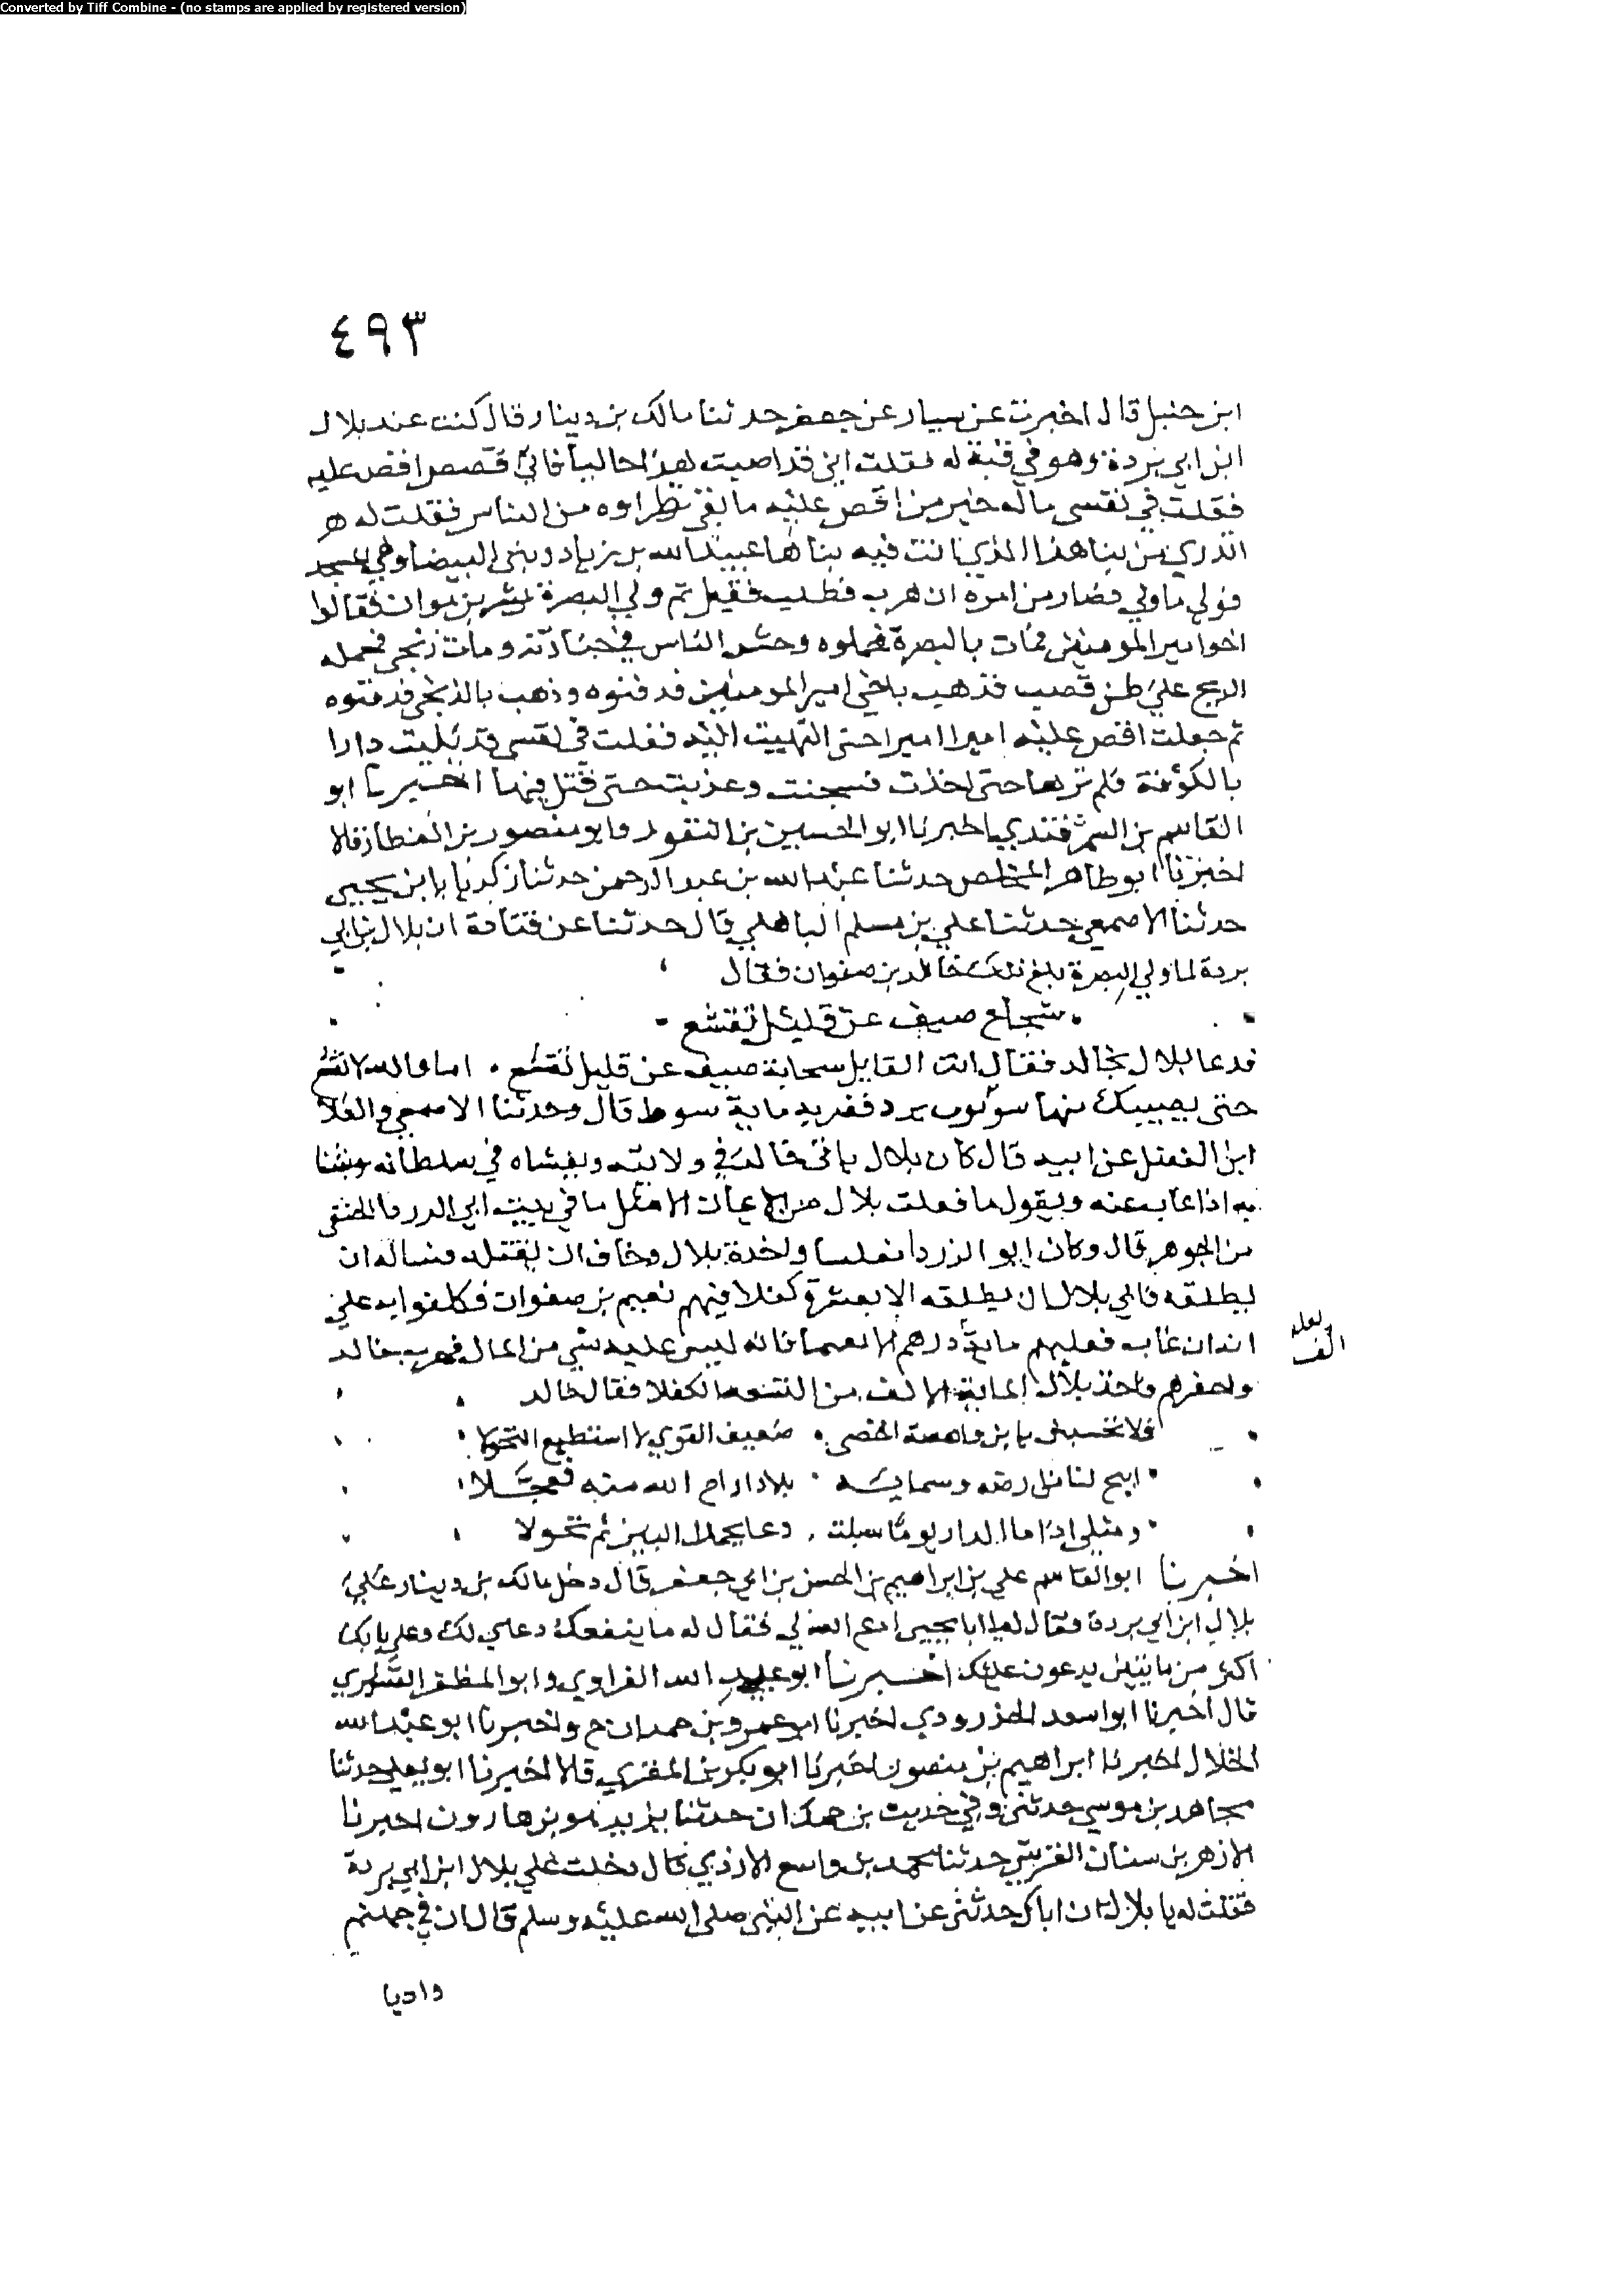 Converted by Tiff Combine - (no stamps are applied by registered version)
٤٩٣
ابن حنبل قال اخبرت عن سيار عن جعفر حدثنا مالك بن دينار قال كنت عند بلال
ابن ابي بردة وهو في قبة له فقلت اني قد اصبت هذا خاليا فاي قصص اقص عليه
فقلت في نفسي ماله خير من اقص عليه ما لقي نظراوه من الناس فقلت له
اتدري من بنا هذا الذي انت فيه بناها عبيد الله بن زياد وبنى البيضا والمسجد
فولي ما ولي فصار من امره ان هرب فطلب فقتل ثم ولي البصرة بشر بن مروان فقالوا
اخو امير المومنين فمات بالبصرة فحملوه وحشد الناس في جنازته ومات زنجي فحمله
الزنج على طن قصب فذهب باخي امير المومنين فدفنوه وذهب بالزنجي فدفنوه
ثم جعلت اقص عليه اميرا اميرا حتى انتهيت اليه فقلت في نفسي قد بنيت دارا
بالكوفة فلم ترها حتى اخذت فسجنت وعذبت حتى قتل فيها اخبرنا ابو
القاسم بن السمرقندي اخبرنا ابو الحسين بن النقور وابو منصور بن العطار قالا
اخبرنا ابو طاهر المخلص حدثنا عبد الله بن عبد الرحمن حدثنا زكريا ابن يحيى
حدثنا الاصمعي حدثنا علي بن مسلم الباهلي قال حدثنا عن قتادة ان بلال بن ابي
بردة لما ولي البصرة بلغ ذلك خالد بن صفوان فقال
صيف عن قليل تقشع
فدعا بلال بخالد فقال انت القايل سحابة صيف عن قليل تقشع . اما والله لا تقشع
حتى يصيبك منها سوبوب برد فضربه ماية سوط قال وحدثنا الاصمعي والعلا
ابن الفضل عن ابيه قال كان بلال ياتي خالد في ولايته ويغشاه في سلطانه
به اذا غاب عنه ويقول ما فعلت بلال من الا مثل ما في بيت ابي الزرد الحنفي
من الجوهر قال وكان ابو الزرد مفلسا واخذه بلال وخاف ان يقتله فساله ان
يطلقه فابى بلال ان يطلقه الا بعشرة كفلا فيهم نعيم بن صفوان فكلفوا به على
انه ان غاب فعليهم ماية درهم الا نعيما فانه ليس عليه شي من المال فهرب خالد
لعله
الف
واخذ بلال الماية الالف من التسعه الكفلا فقال خالد
فلا تحسبني يا بن واهصة الخصى . ضعيف القوي لا استطيع التحولا
ارضه وسمايه . بلادا اراح الله منه فعجلا
ومثلي اذا ما الدار يوما نبت . دعا ثم تحولا
اخبرنا ابو القاسم علي بن ابراهيم بن الحسن بن ابي جعفر قال دخل مالك بن دينار على
بلال ابن ابي بردة فقال له يا ابا يحيى ادع الله لي فقال له ما ينفعك دعاي لك وعلى بابك
اكثر من مايتين يدعون عليك اخبرنا ابو عبد الله الفراوي وابو المظفر القشيري
قالا اخبرنا ابو سعد الجنزرودي اخبرنا ابو عمرو بن حمدان ح واخبرنا ابو عبد الله
الخلال اخبرنا ابراهيم بن منصور اخبرنا ابو بكر بن المقري قالا اخبرنا ابو يعلى حدثنا
مجاهد بن موسى حدثني وفي حديث بن حمدان حدثنا يزيد هو بن هارون اخبرنا
الازهر بن سنان القرشي حدثنا محمد بن واسع الازدي قال دخلت على بلال ابن ابي بردة
فقلت له يا بلال ان اباك حدثني عن ابيه عن النبي صلى الله عليه وسلم قال ان في جهنم
واديا